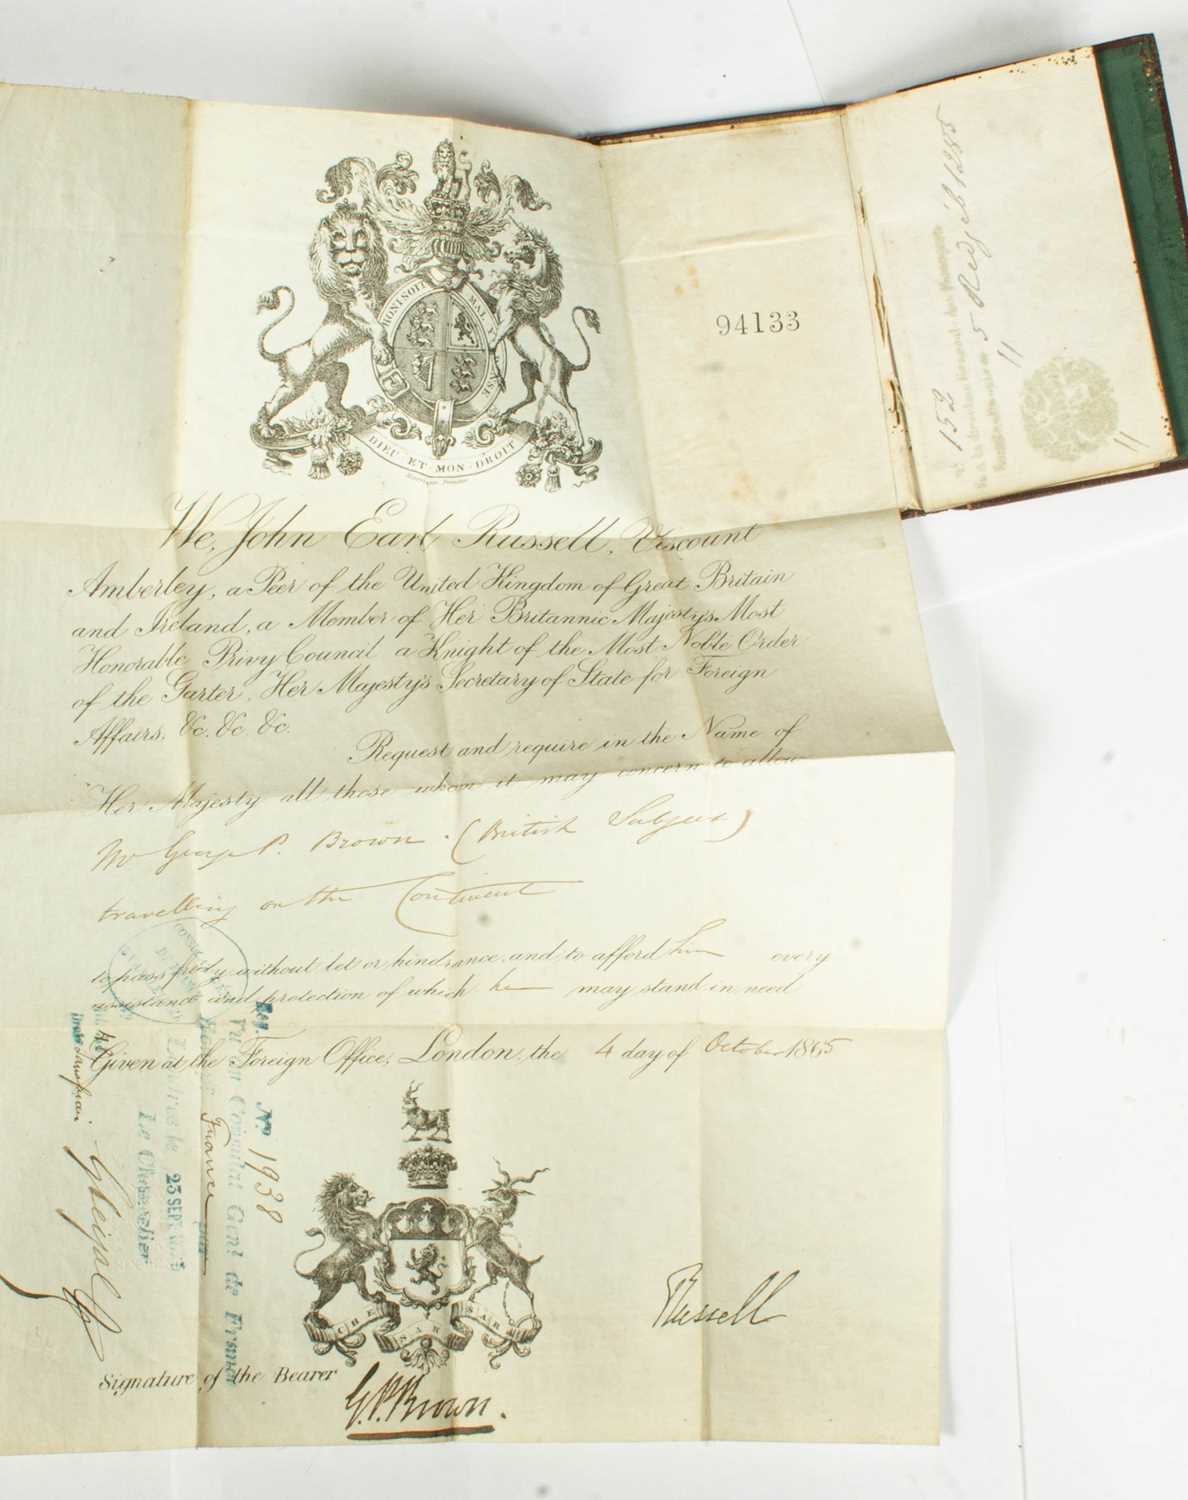 HONI SOIT MAL Y PENSE
DIEU ET MON DROIT
94133
152
5 Redjeb 1285
We, John Earl Russell, Viscount
Amberley, a Peer of the United Kingdom of Great Britain
and Ireland, a Member of Her Britannic Majesty's Most
Honorable Privy Council a Knight of the Most Noble Order
of the Garter, Her Majesty's Secretary of State for Foreign
Affairs, &c. &c. &c.
Request and require in the Name of
Her Majesty all those whom it may concern to allow
Mr George P. Brown (British Subject)
travelling on the Continent
to pass freely without let or hindrance and to afford him every
assistance and protection of which he may stand in need
Given at the Foreign Office, London, the 4 day of October 1865
Nº 1938
Vu au Consulat Genl de France
France
Londres le 23 SEPT
Le Chancelier
CHE SARA SARA
Russell
Signature of the Bearer
G.P.Brown.